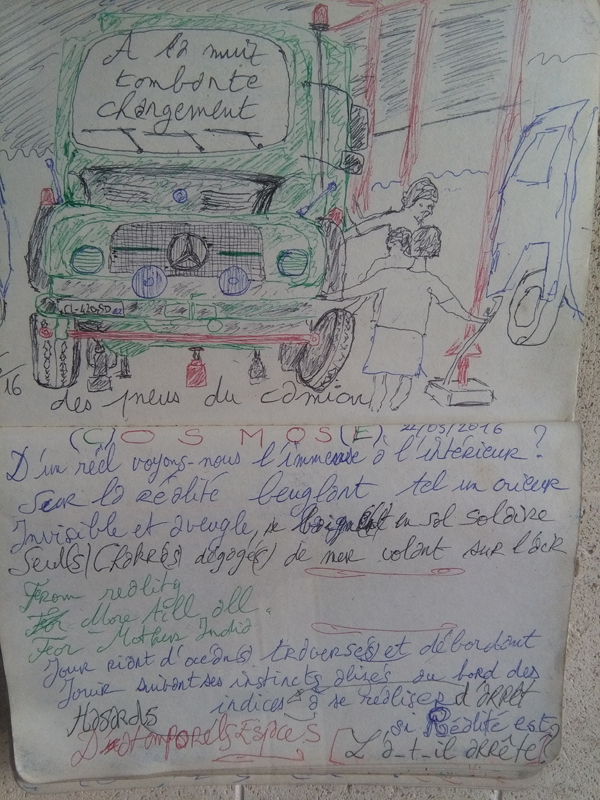 A la nuit
tombante
chargement
/16
des pneus du camion
(C) O S M O S (E) 22/05/2016
D'un réel voyons-nous l'immense à l'intérieur ?
Sur la réalité beuglant tel un crieur
Invisible et aveugle, se en sol solaire
Seul(s) Chakra(s) dégagé(s) de mer volant sur l'air
From reality
More till all.
For Mother India
Jour riant d'océan(s) traversé(s) et débordant
Jouir suivant ses instincts au bord des
indices à se réaliser d'arrêt
Hasards si Réalité est
D Espaces [L'a-t-il arrêté?]